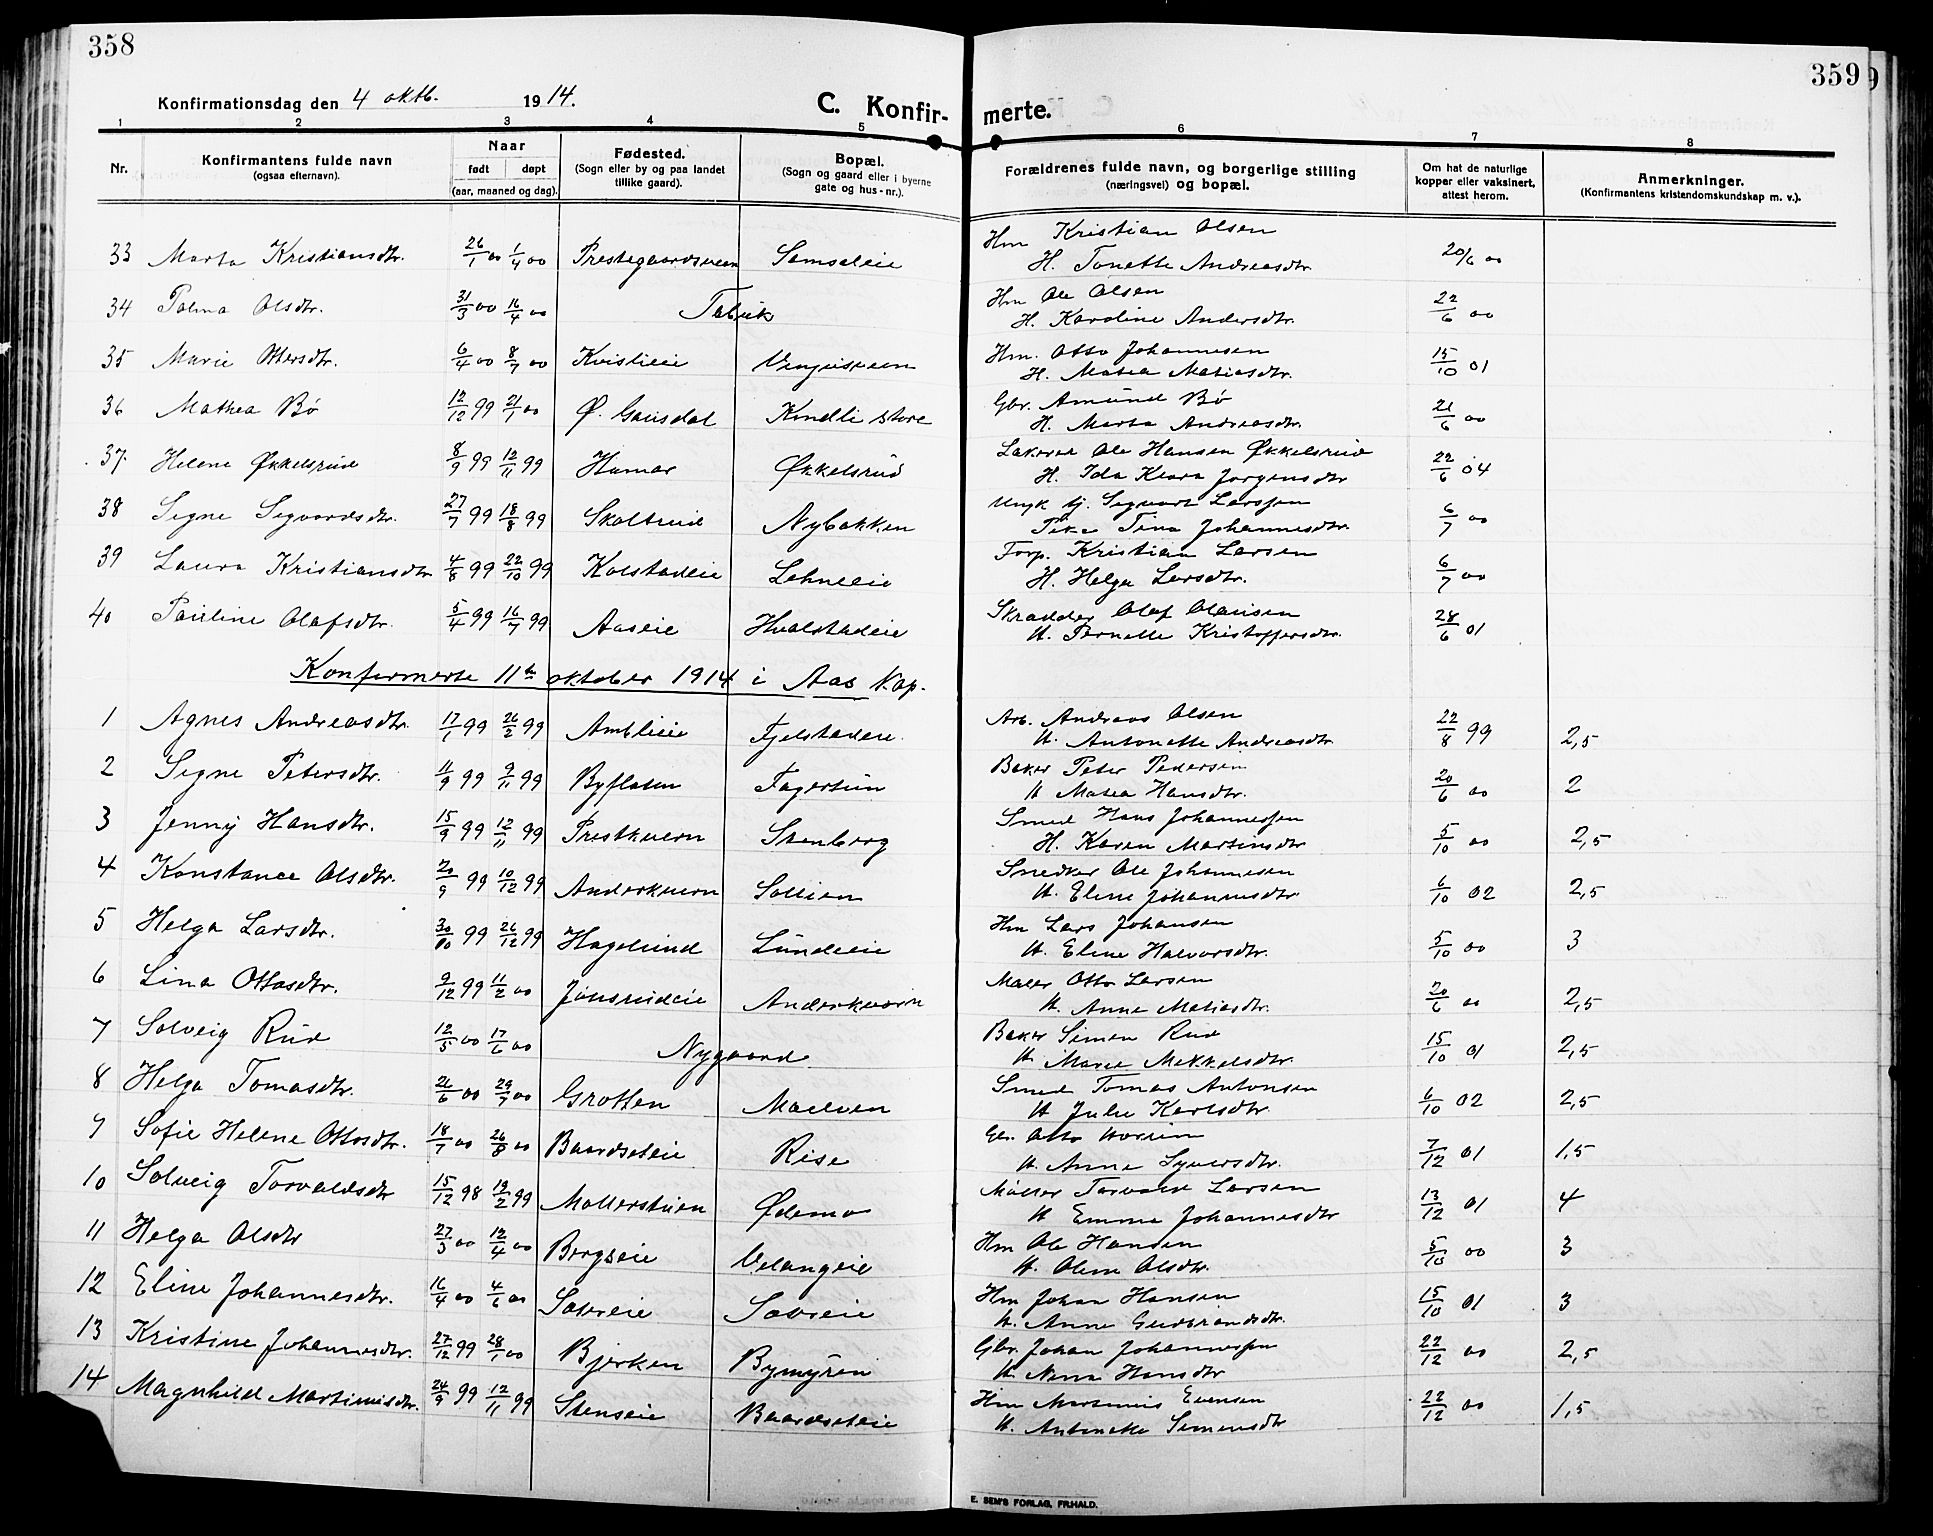 358
359
Konfirmationsdag den 4 oktb. 1914.
C. Konfir-
merte.
1 2 3 4 5 6 7 8
Nr. Konfirmantens fulde navn (ogsaa efternavn). Naar født døpt (aar, maaned og dag). Fødested. (Sogn eller by og paa landet tillike gaard). Bopæl. (Sogn og gaard eller i byerne gate og hus-nr.). Forældrenes fulde navn, og borgerlige stilling (næringsvei) og bopæl. Om hat de naturlige kopper eller vaksinert, attest herom. Anmerkninger. (Konfirmantens kristendomskundskap m. v.).
33 Marta Kristiansdtr. 26/1 00 1/4 00 Samseleie Hm Kristian Olsen 20/6 00
H. Tonette Andreasdtr.
34 Palma Olsdtr. 31/3 00 16/4 00 Hm Ole Olsen 22/6 00
H. Karoline Andersdtr.
35 Marie Ottersdtr. 6/4 00 8/7 00 Kvistleie Hm. Otto Johannesen 15/10 01
H. Matea Matiasdtr.
36 Mathea Bø 12/12 99 21/1 00 Ø. Gausdal Kindli store Gbr. Amund Bø 21/6 00
H. Marta Andreasdtr.
37 Helene Økkelsrud 8/9 99 12/11 99 Hamar Økkelsrud Ole Hansen Økkelsrud 22/6 04
H. Ida Klara Jørgensdtr
38 Signe Sigvardsdtr. 27/7 99 18/8 99 Nybakken Ungk tj. Sigvart Larssen 6/7 00
Pike Tina Johannesdtr.
39 Laura Kristiansdtr 4/8 99 22/10 99 Kolstadeie Lehneeie Forp. Kristian Larsen 6/7 00
H. Helga Larsdtr.
40 Pauline Olafsdtr. 5/4 99 16/7 99 Aaseie Hvalstadeie Skrædder Olaf Olausen 28/6 01
H. Pernette Kristoffersdtr.
Konfirmerte 11te oktober 1914 i Aas Kap.
1 Agnes Andreasdtr. 17/1 99 26/2 99 Amblieie Fjelstadeie. Arb. Andreas Olsen 22/8 99 2,5
H. Antonette Andreasdtr
2 Signe Petersdtr. 11/9 99 9/11 99 Byflaten Fagertun Baker Peter Pedersen 20/6 00 2
H Matea Hansdtr.
3 Jenny Hansdtr. 15/9 99 12/11 99 Prestkvern Stenberg Smed Hans Johannessen 5/10 00 2,5
H. Karen Martinsdtr
4 Konstance Olsdtr. 20/9 99 10/12 99 Anderkvern Sollien Snedker Ole Johannesen 6/10 02 2,5
H. Eline Johannesdtr
5 Helga Larsdtr. 30/10 99 26/12 99 Hagelund Lundeie Hm Lars Johansen 5/10 00 3
H. Eline Halvorsdtr.
6 Lina Ottosdtr. 9/12 99 11/2 00 Jønsrudeie Anderkvern Maler Otto Larsen 20/6 00 2,5
H. Anne Matiasdtr.
7 Solveig Rud 12/5 00 17/6 00 Nygaard Baker Simen Rud 15/10 01 2,5
H. Marie Mikkelsdtr.
8 Helga Tomasdtr. 26/6 00 29/7 00 Grotten Maelven Smed Tomas Antonsen 6/10 02 2,5
H Julie Karlsdtr.
9 Sofie Helene Ottosdtr. 18/7 00 26/8 00 Baardseteie Rise Gbr. Otto 7/12 01 1,5
H. Anne Syversdtr.
10 Solveig Torvaldsdtr 15/12 98 19/2 99 Møllerstuen Ødemo Møller Torvald Larsen 13/12 01 4
H Emma Johannesdtr
11 Helga Olsdtr 27/3 00 12/4 00 Bergseie Velangeie Hm Ole Hansen 5/10 00 3
H. Oline Olsdtr.
12 Eline Johannesdtr. 16/4 00 4/6 00 Hm Johan Hansen 15/10 01 3
H. Anne Gudbrandsdtr.
13 Kristine Johannesdtr. 27/12 99 28/1 00 Bjerken Bymyren Gbr. Johan Johannessen 22/12 00 2,5
H. Hansdtr
14 Magnhild Martiniusdtr. 24/9 99 12/11 99 Stenseie Baardseteie Hm Martinius Evensen 22/12 00 1,5
H. Simensdtr
E. SEM'S FORLAG, FR.HALD.